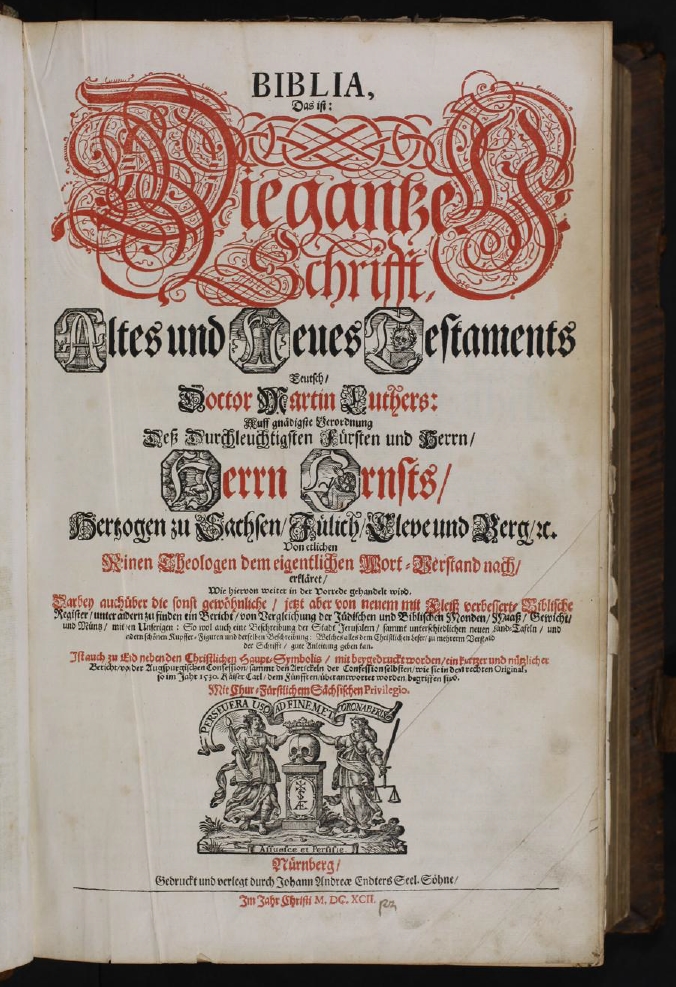 BIBLIA,
Das ist:
Die gantze H.
Schrifft,
Altes und Neues Testaments
Teutsch/
Doctor Martin Luthers:
Auff gnädigste Verordnung
Deß Durchleuchtigsten Fürsten und Herrn/
Herrn Ernsts/
Hertzogen zu Sachsen/Jülich/Cleve und Berg/ꝛc.
Von etlichen
Reinen Theologen dem eigentlichen Wort-Verstand nach/
erkläret/
Wie hiervon weiter in der Vorrede gehandelt wird.
Darbey auch über die sonst gewöhnliche / jetzt aber von neuem mit Fleiß verbesserte Biblische
Register/unter andern zu finden ein Bericht/von Vergleichung der Jüdischen und Biblischen Monden/Maaß/Gewicht/
und Müntz/ mit den Unserigen: So wol auch eine Beschreibung der Stadt Jerusalem / sammt unterschiedlichen neuen Land-Tafeln / und
andern schönen Kupffer-Figuren und derselben Beschreibung: Welches alles dem Christlichen Leser/zu mehrerm Verstand
der Schrifft / gute Anleitung geben kan.
Ist auch zu End neben den Christlichen Haupt-Symbolis / mit beygedruckt worden/ein kurtzer und nützlicher
Bericht/von der Augspurgischen Confession/sammt den Articeln der Confession selbsten/wie sie in dem rechten Original,
so im Jahr 1530. Käiser Carl/dem Fünfften/überantwortet worden/begriffen sind.
Mit Chur-Fürstlichem Sächsischen Privilegio.
PERSEVERA USQ AD FINEM ET CORONABERIS
Assuesce et Persiste.
Nürnberg/
Gedruckt und verlegt durch Johann Andreæ Endters Seel. Söhne/
Im Jahr Christi M. DC. XCII.